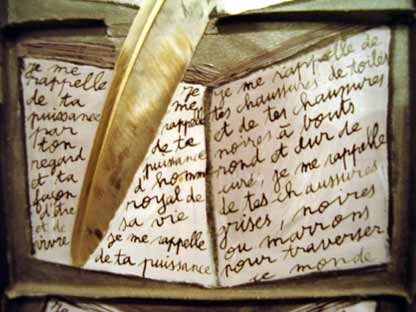 je me
rappelle
de ta
puissance
par
ton
regard
et ta
façon
d'être
et de
vivre
je
me
rappelle
de ta
puissance
d'homme
royal de
sa vie
je me rappelle
de ta puissance
je me rappelle de
tes chaussures de toiles
et de tes chaussures
noires à bouts
rond et dur de
je me rappelle
de tes chaussures
grises, noires
ou marrons
pour traverser
le monde